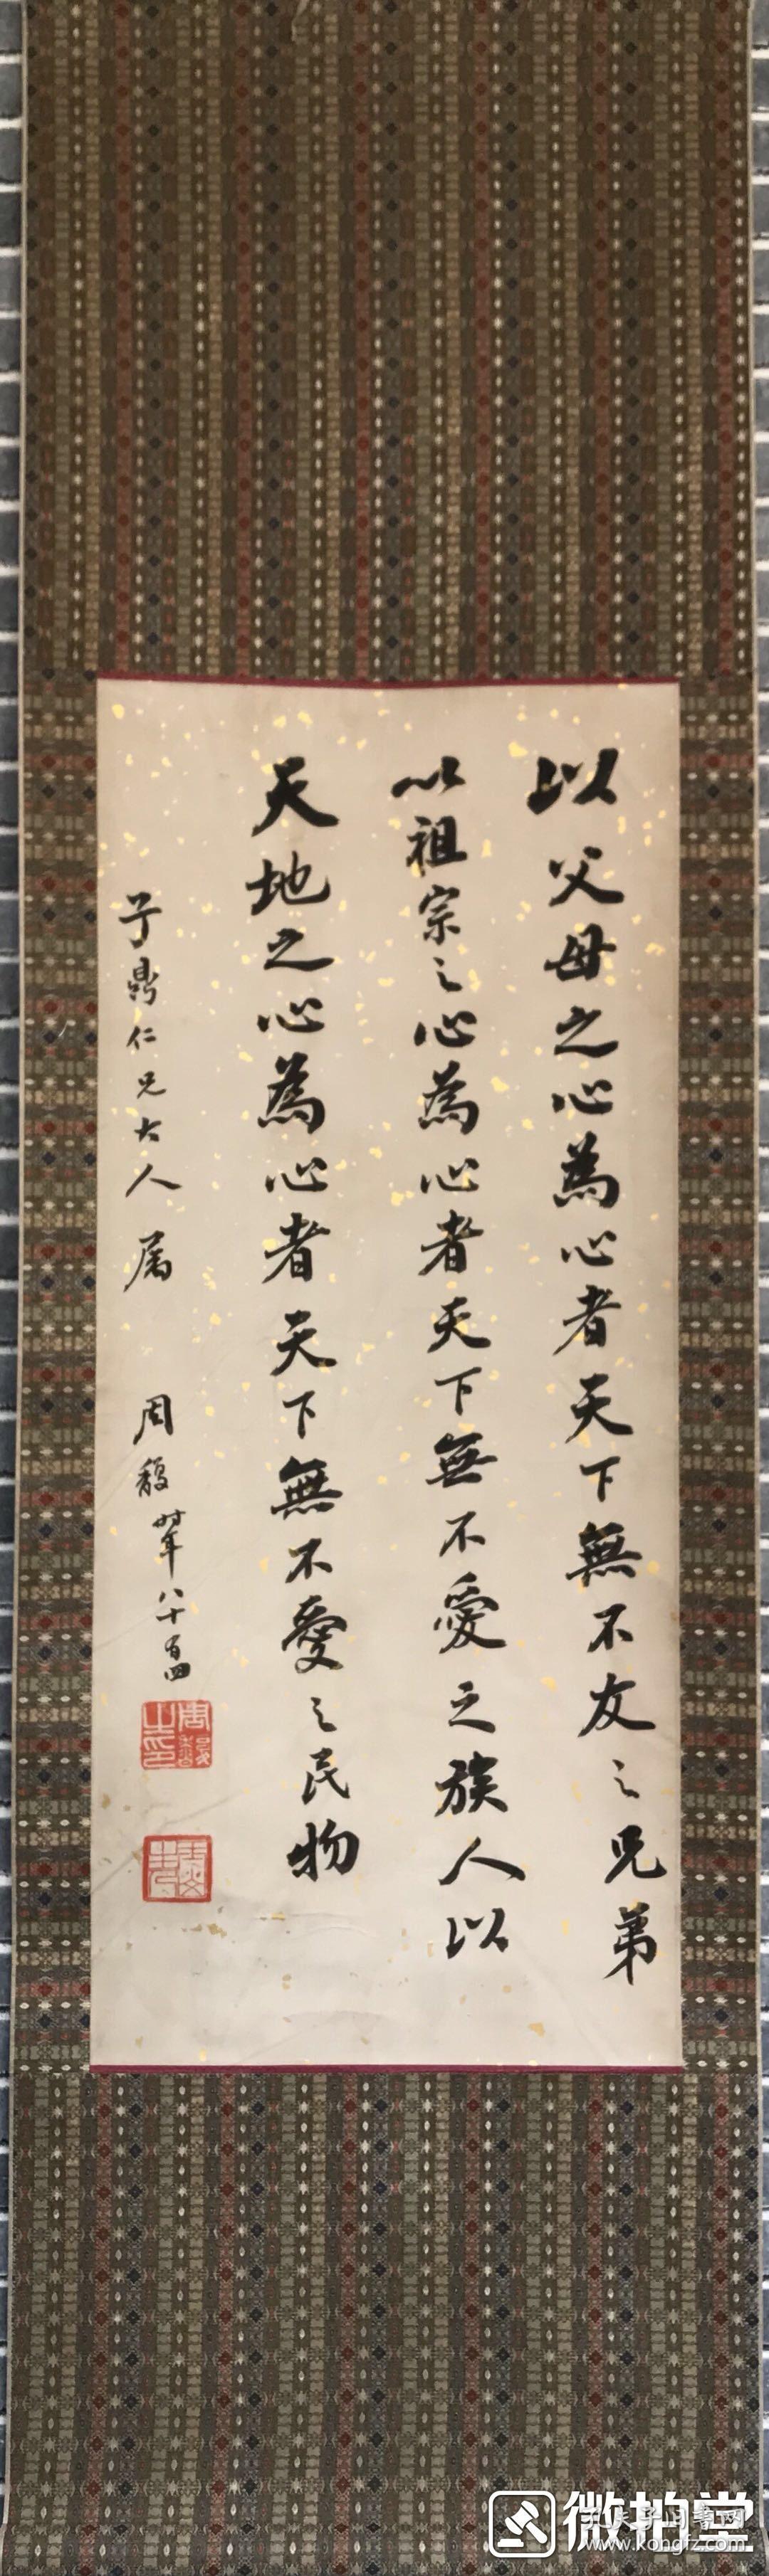 以父母之心為心者天下無不友之兄弟
以祖宗之心為心者天下無不愛之族人以
天地之心為心者天下無不愛之民物
子鼎仁兄大人属
周馥時年八十有四
周馥之印
微拍堂
www.kongfz.com